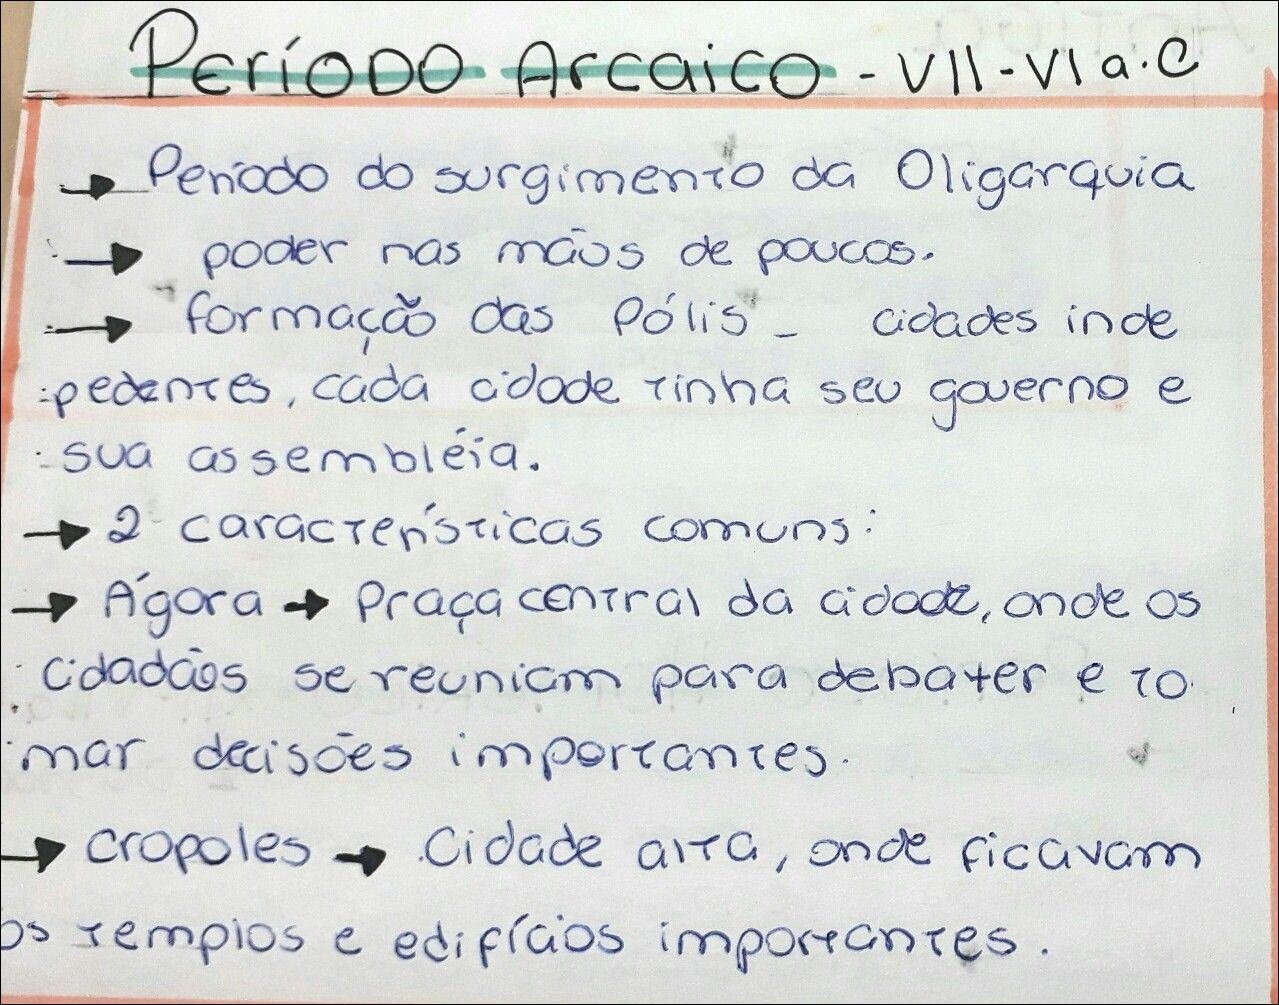 Período Arcaico - VII - VI a.C
→ Período do surgimento da Oligarquia
→ poder nas mãos de poucos.
→ formação das Pólis - cidades inde
pedentes, cada cidade tinha seu governo e
sua assembléia.
→ 2 características comuns:
→ Ágora → Praça central da cidade, onde os
cidadãos se reuniam para debater e to
mar decisões importantes.
→ cropoles → Cidade alta, onde ficavam
os templos e edifícios importantes.